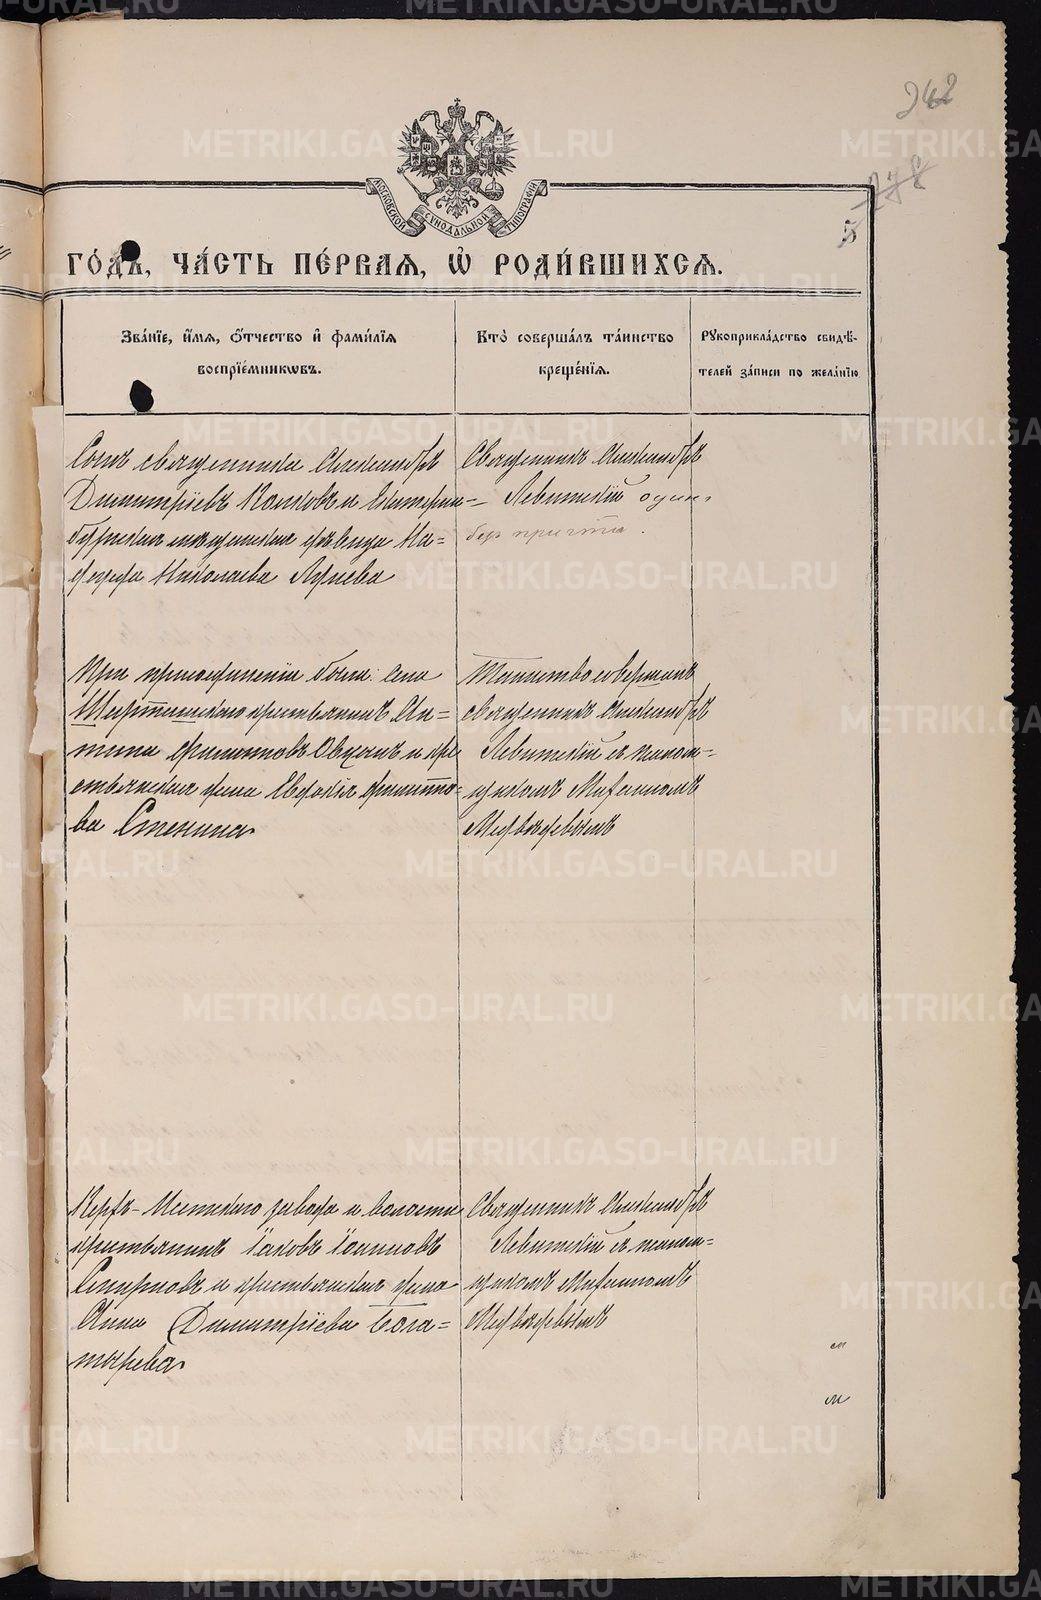 242
МОСКОВСКОЙ СѴНОДАЛЬНОЙ ТИПОГРАФІИ
5
ГО́ДЪ, ЧА́СТЬ ПЕ́РВАЯ, Ѽ РОДИ́ВШИХСЯ.
Зва́нїе, и҆́мя, ѻ҆́тчество и҆ фами́лїя
воспрїе́мникѡвъ.
Кто̀ соверша́лъ та́инство
креще́нїя.
Рꙋкоприкла́дство свидѣ́-
телей за́писи по жела́нїю
Сынъ священника Александръ
Димитріевъ и Екатерин=
бургская мѣщанская дѣвица На=
дежда Николаева
Священникъ Александръ
Левитскій одинъ
безъ причта.
При присоединеніи были: села
Шарташскаго крестьянинъ Ан=
типа Филипповъ и кре
стьянская жена Евдокія Филиппо=
ва Стенина
Таинство совершилъ
священникъ Александръ
Левитскій съ псалом=
щикомъ
Медвѣдевымъ
Верхъ-Исетскаго завода и волости
крестьянинъ Іаковъ Іоанновъ
Смирновъ и крестьянская жена
Анна Димитріева Бога=
тырева
Священникъ Александръ
Левитскій съ псалом=
щикомъ
Медвѣдевымъ
METRIKI.GASO-URAL.RU